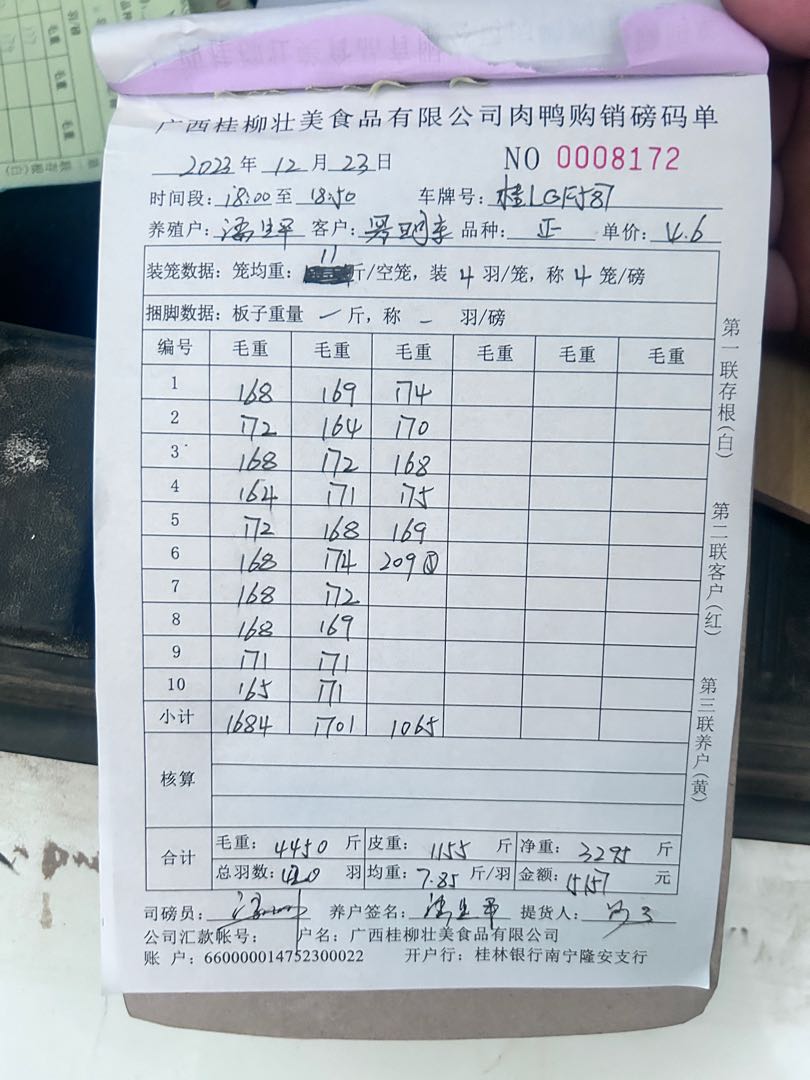 广西桂柳壮美食品有限公司肉鸭购销磅码单
2023年 12月 23日 NO 0008172
时间段: 18:00 至 18:50 车牌号:
养殖户: 客户: 品种: 正 单价: 4.6
装笼数据: 笼均重: 11 斤/空笼, 装 4 羽/笼, 称 4 笼/磅
捆脚数据: 板子重量 一 斤, 称 - 羽/磅
编号 毛重 毛重 毛重 毛重 毛重 毛重
1 168 169 174
2 172 164 170
3 168 172 168
4 164 171 175
5 172 168 169
6 168 174 209
7 168 172
8 168 169
9 171 171
10 165 171
小计 1684 1701 1065
核算
合计 毛重: 4450 斤 皮重: 1155 斤 净重: 3295 斤
总羽数: 420 羽 均重: 7.85 斤/羽 金额: 15157 元
司磅员: 养户签名: 提货人:
公司汇款帐号: 户名: 广西桂柳壮美食品有限公司
账 户: 660000014752300022 开户行: 桂林银行南宁隆安支行
第一联存根(白)
第二联客户(红)
第三联养户(黄)